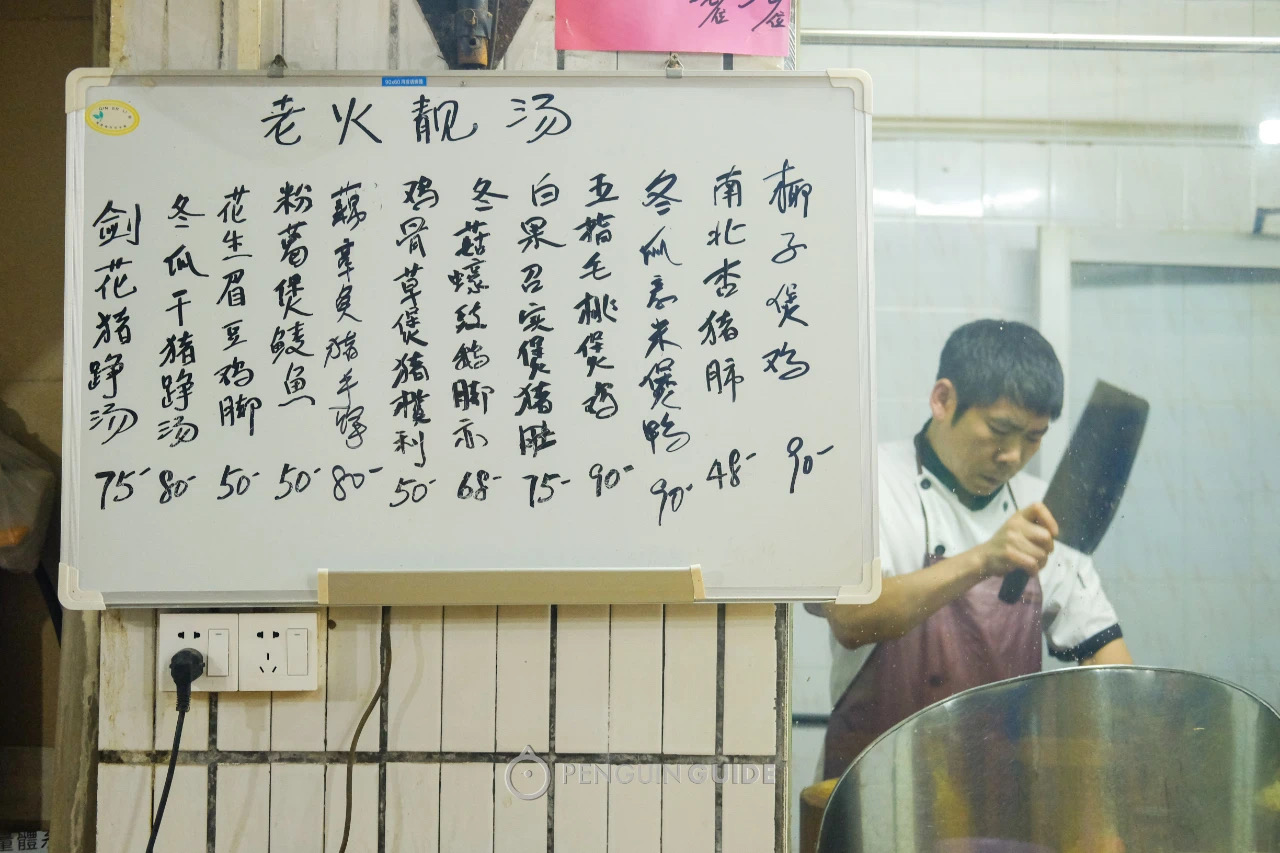 老火靓汤
椰子煲鸡 90-
南北杏猪肺 48-
冬瓜意米煲鸭 90-
五指毛桃煲鸡 90-
白果召实煲猪肚 75-
冬菇蠔豉鹅脚亦 68-
鸡骨草煲猪横利 50-
猪手 80-
粉葛煲鲮鱼 50-
花生眉豆鸡脚 50-
冬瓜干猪踭汤 80-
剑花猪踭汤 75-
PENGUIN GUIDE